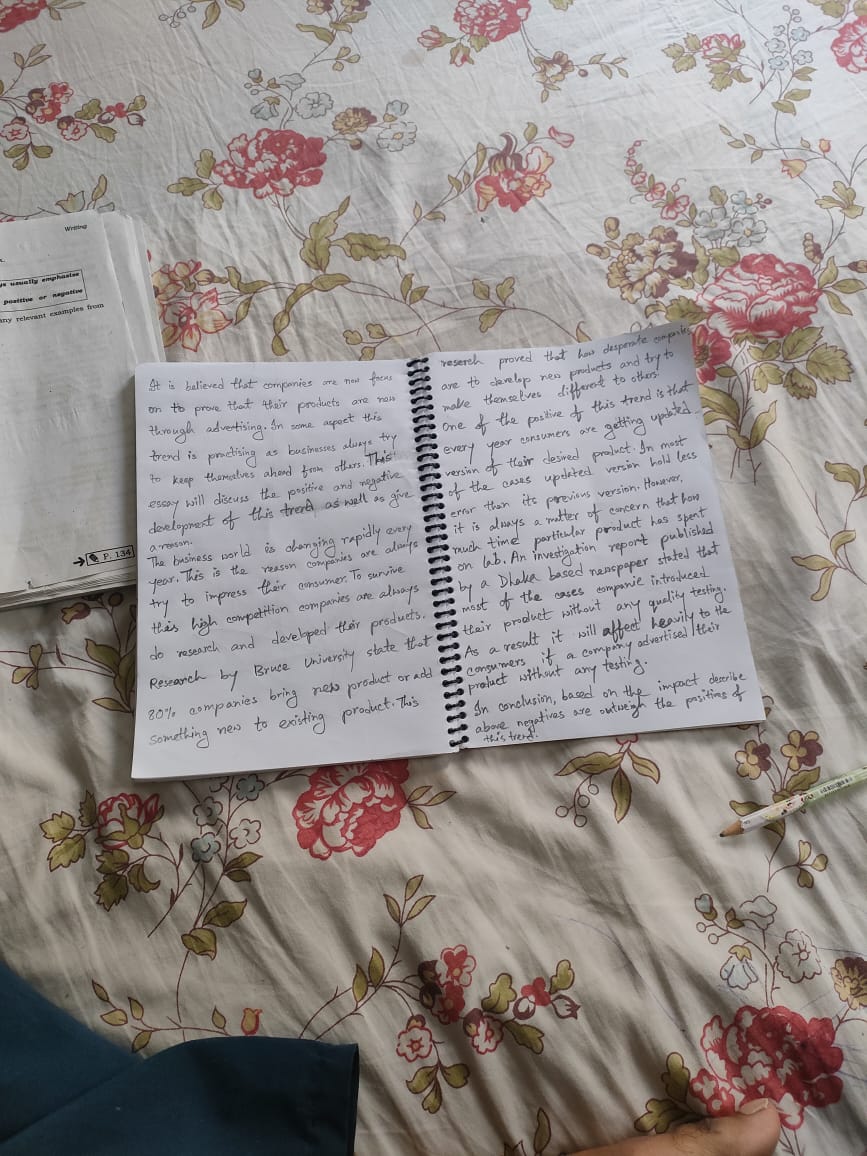 Writing
ys usually emphasise
positive or negative
ny relevant examples from
P. 134
It is believed that companies are now focus
on to prove that their products are new
through advertising. In some aspect this
trend is practising as businesses always try
to keep themselves ahead from others. This
essay will discuss the positive and negative
development of this trend as well as give
a reason.
The business world is changing rapidly every
year. This is the reason companies are always
try to impress their consumer. To survive
this high competition companies are always
do research and developed their products.
Research by Bruce University state that
80% companies bring new product or add
something new to existing product. This
reserch proved that how desperate companies
are to develop new products and try to
make themselves different to others.
One of the positive of this trend is that
every year consumers are getting updated
version of their desired product. In most
of the cases updated version hold less
error than its previous version. However,
it is always a matter of concern that how
much time particular product has spent
on lab. An investigation report published
by a Dhaka based newspaper stated that
most of the cases companie introduced
their product without any quality testing.
As a result it will affect heavily to the
consumers if a company advertised their
product without any testing.
In conclusion, based on the impact describe
above negatives are outweigh the positives of
this trend.